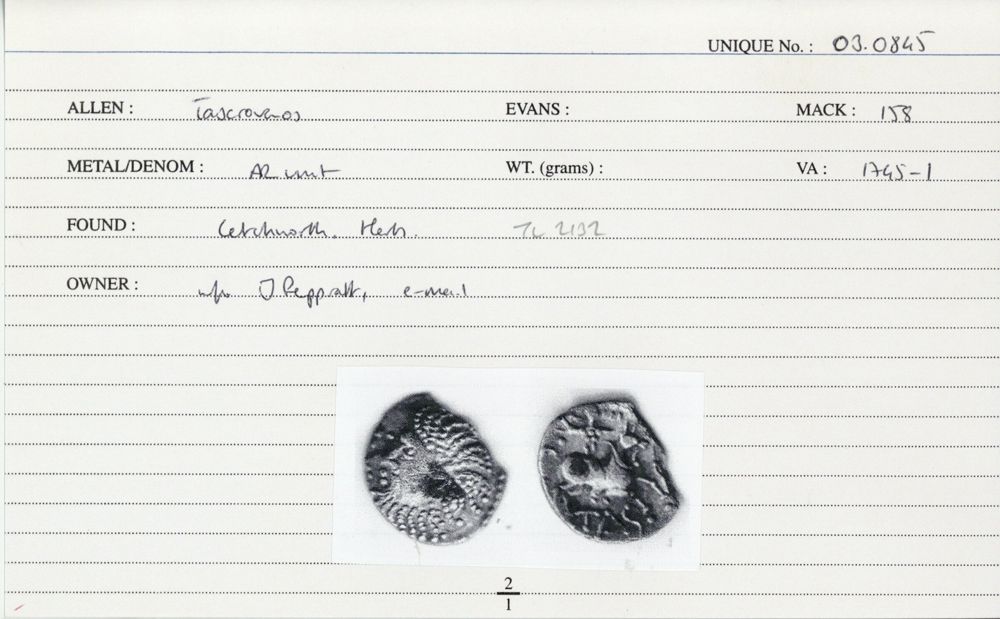 UNIQUE No. : 03.0845
ALLEN : Tasciovanos EVANS : MACK : 158
METAL/DENOM : AR unit WT. (grams) : VA : 1745-1
FOUND : Letchworth. Herts. TL 2132
OWNER : info J Peppratt, e-mail
2
1